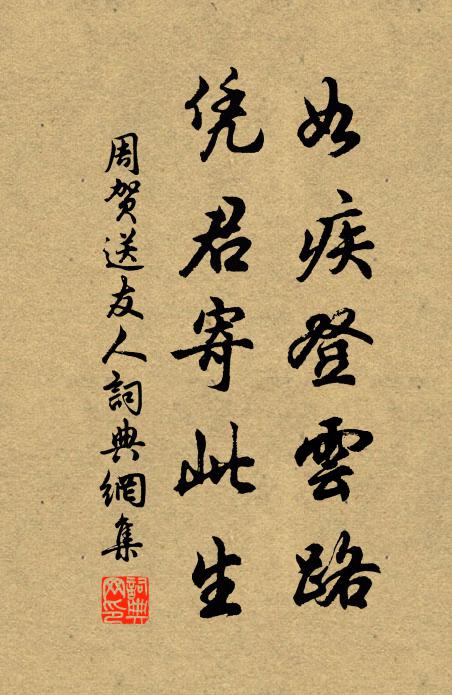 如疾登雲路
凭君寄此生
周贺送友人詞典網集
詞典網印